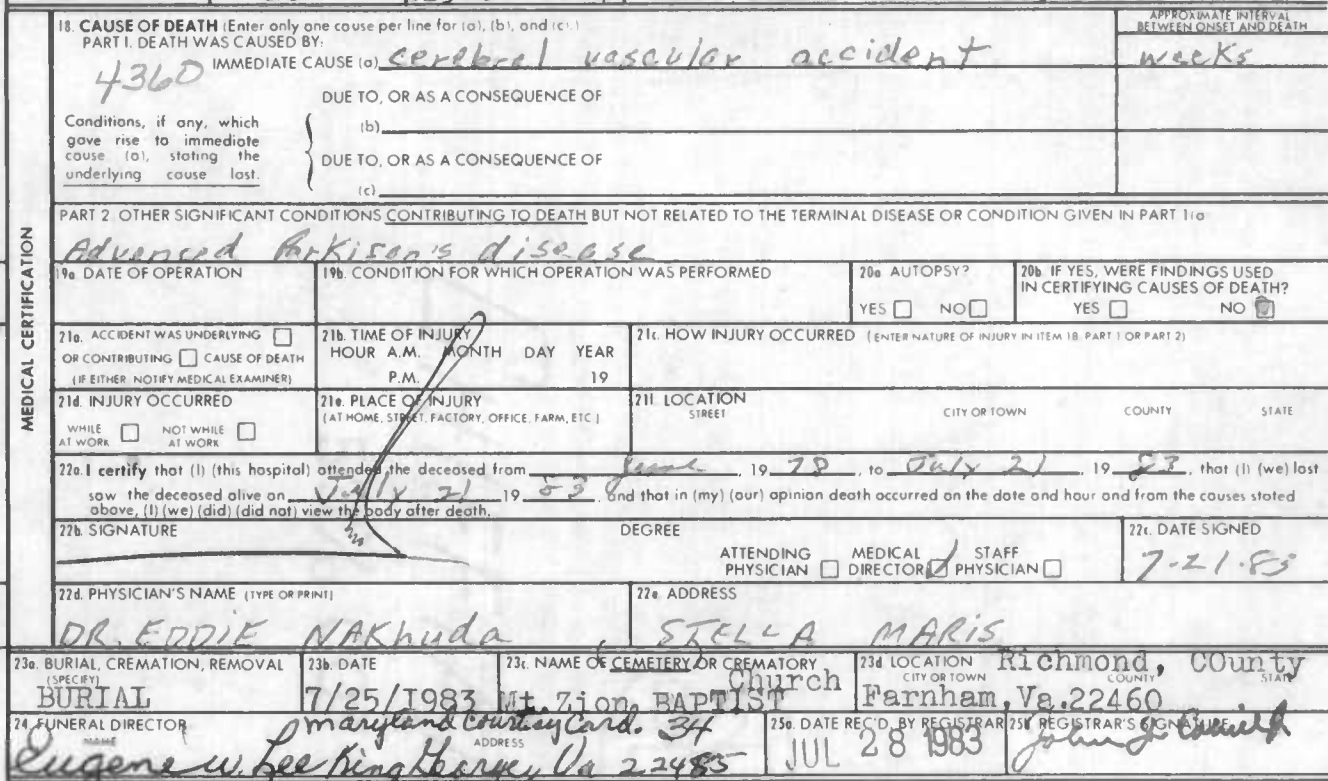 18. CAUSE OF DEATH (Enter only one cause per line for (a), (b), and (c).)
APPROXIMATE INTERVAL
BETWEEN ONSET AND DEATH
PART I. DEATH WAS CAUSED BY:
4360
IMMEDIATE CAUSE (a) cerebral vascular accident
weeks
DUE TO, OR AS A CONSEQUENCE OF
Conditions, if any, which
gave rise to immediate
cause (a), stating the
underlying cause last.
(b)
DUE TO, OR AS A CONSEQUENCE OF
(c)
MEDICAL CERTIFICATION
PART 2. OTHER SIGNIFICANT CONDITIONS CONTRIBUTING TO DEATH BUT NOT RELATED TO THE TERMINAL DISEASE OR CONDITION GIVEN IN PART 1(a
Advanced Parkison's disease
19a DATE OF OPERATION
19b. CONDITION FOR WHICH OPERATION WAS PERFORMED
20a AUTOPSY?
YES NO
20b. IF YES, WERE FINDINGS USED
IN CERTIFYING CAUSES OF DEATH?
YES NO
21a. ACCIDENT WAS UNDERLYING
OR CONTRIBUTING CAUSE OF DEATH
(IF EITHER NOTIFY MEDICAL EXAMINER)
21b. TIME OF INJURY
HOUR A.M. MONTH DAY YEAR
P.M. 19
21c. HOW INJURY OCCURRED (ENTER NATURE OF INJURY IN ITEM 18 PART 1 OR PART 2)
21d. INJURY OCCURRED
WHILE AT WORK NOT WHILE AT WORK
21e. PLACE OF INJURY
(AT HOME, STREET, FACTORY, OFFICE, FARM, ETC.)
21f. LOCATION
STREET CITY OR TOWN COUNTY STATE
22a. I certify that (I) (this hospital) attended the deceased from June, 19 78, to July 21, 19 83, that (I) (we) last
saw the deceased alive on July 21 19 83, and that in (my) (our) opinion death occurred on the date and hour and from the causes stated
above, (I) (we) (did) (did not) view the body after death.
22b. SIGNATURE
DEGREE
ATTENDING PHYSICIAN MEDICAL DIRECTOR STAFF PHYSICIAN
22c. DATE SIGNED
7-21-83
22d. PHYSICIAN'S NAME (TYPE OR PRINT)
DR. EDDIE NAKhuda
22e ADDRESS
STELLA MARIS
23a. BURIAL, CREMATION, REMOVAL
(SPECIFY)
BURIAL
23b. DATE
7/25/I983
23c. NAME OF CEMETERY OR CREMATORY
Church
Mt. Zion BAPTIST
23d LOCATION
CITY OR TOWN COUNTY STATE
Richmond, COunty
Farnham, Va.22460
24 FUNERAL DIRECTOR
NAME ADDRESS
Maryland Courtesy Card. 34
Eugene W. Lee King George, Va 22485
25a. DATE REC'D. BY REGISTRAR
JUL 28 1983
25b REGISTRAR'S SIGNATURE